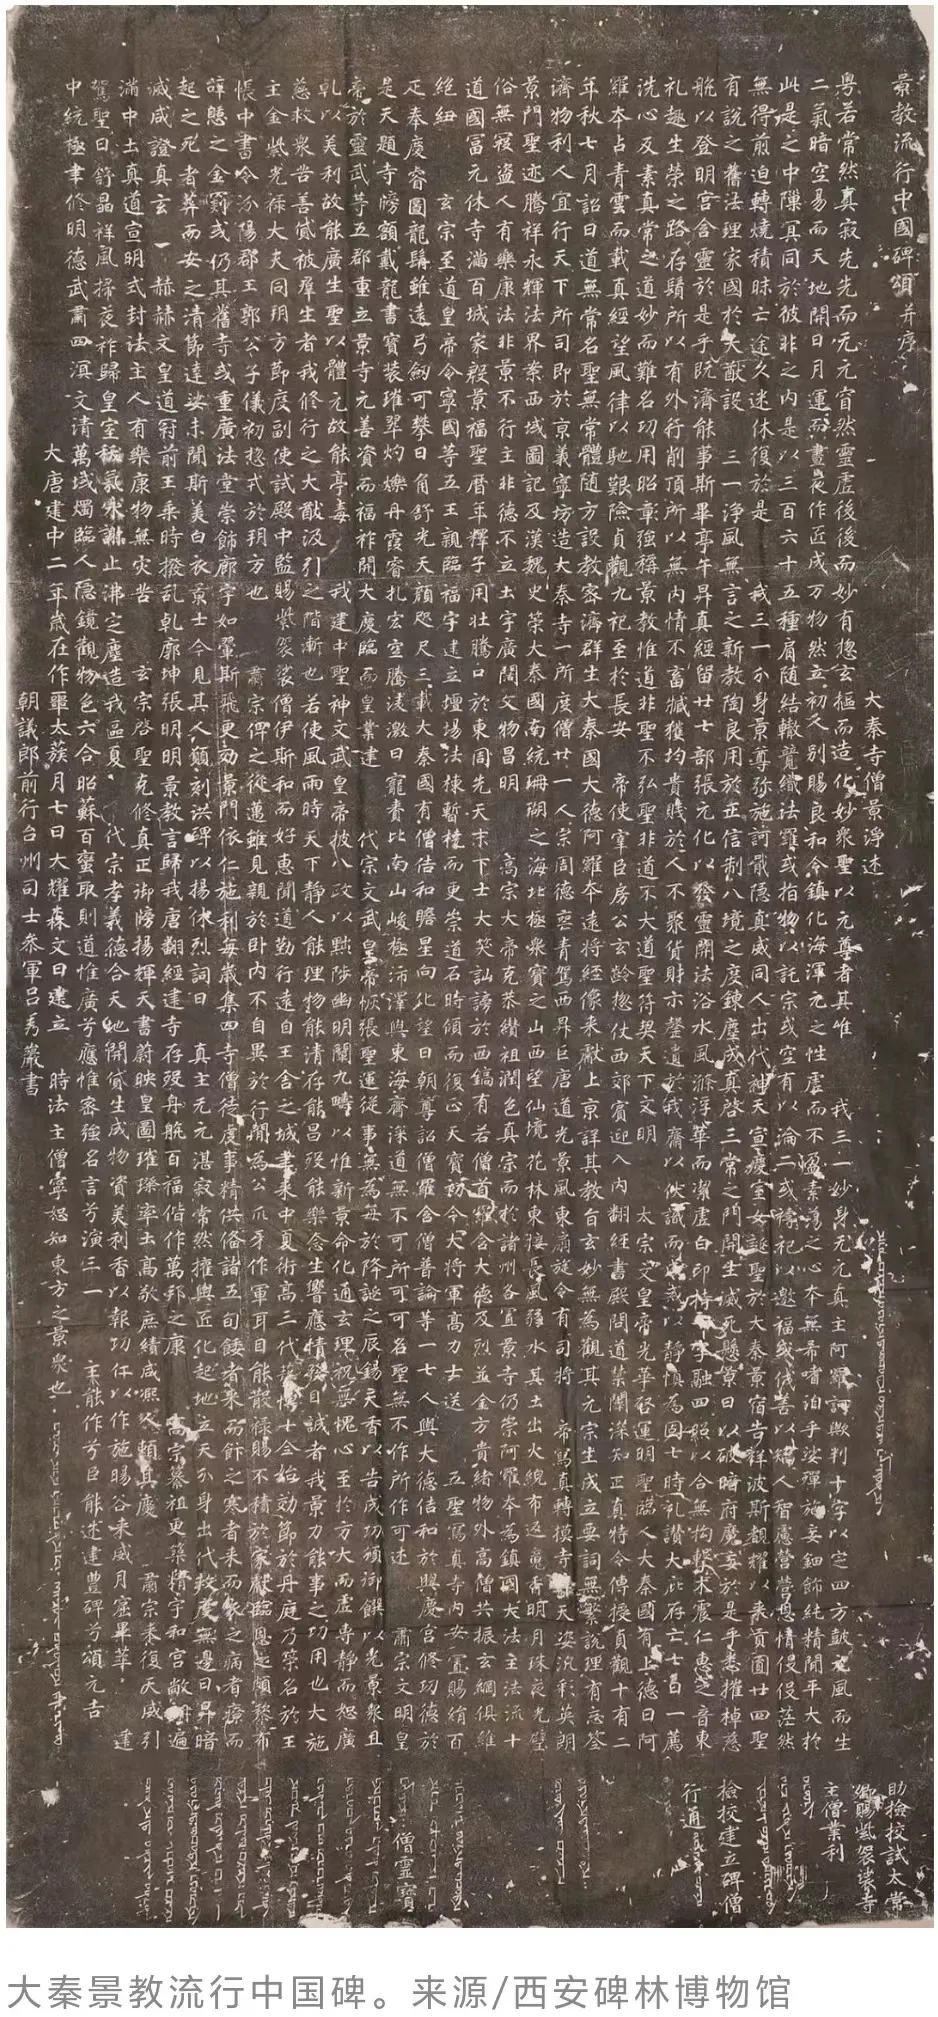 景教流行中國碑頌并序
大秦寺僧景淨述
粵若常然真寂先先而无元窅然靈虛後後而妙有惣玄樞而造化妙衆聖以元尊者其唯我三一妙身无元真主阿羅訶歟判十字以定四方鼓元風而生
二氣暗空易而天地開日月運而晝夜作匠成万物然立初人別賜良和令鎮化海渾元之性虛而不盈素蕩之心本無希嗜洎乎娑殫施妄鈿飾純精閒平大於
此是之中隟冥同於彼非之內是以三百六十五種肩隨結轍競織法羅或指物以託宗或空有以淪二或禱祀以邀福或伐善以矯人智慮營營恩情伇伇茫然
無得煎迫轉燒積昧亡途久迷休復於是我三一分身景尊弥施訶戢隱真威同人出代神天宣慶室女誕聖於大秦景宿告祥波斯覩耀以來貢圓廿四聖
有說之舊法理家國於大猷設三一淨風無言之新教陶良用於正信制八境之度鍊塵成真啓三常之門開生滅死懸景日以破暗府魔妄於是乎悉摧棹慈
航以登明宮含靈於是乎旣濟能事斯畢亭午昇真經留廿七部張元化以發靈關法浴水風滌浮華而潔虛白印持十字融四照以合無拘擊木震仁惠之音東
礼趣生榮之路存鬚所以有外行削頂所以無內情不畜臧獲均貴賤於人不聚貨財示罄遺於我齋以伏識而成戒以靜慎為固七時礼讚大庇存亡七日一薦
洗心反素真常之道妙而難名功用昭彰強稱景教惟道非聖不弘聖非道不大道聖符契天下文明太宗文皇帝光華啓運明聖臨人大秦國有上德曰阿
羅本占青雲而載真經望風律以馳艱險貞觀九祀至於長安帝使宰臣房公玄齡惣仗西郊賓迎入內翻經書殿問道禁闈深知正真特令傳授貞觀十有二
年秋七月詔曰道無常名聖無常體隨方設教密濟群生大秦國大德阿羅本遠將經像來獻上京詳其教旨玄妙無為觀其元宗生成立要詞無繁說理有忘筌
濟物利人宜行天下所司即於京義寧坊造大秦寺一所度僧廿一人宗周德喪青駕西昇巨唐道光景風東扇旋令有司將帝寫真轉摸寺壁天姿汎彩英朗
景門聖迹騰祥永輝法界案西域圖記及漢魏史策大秦國南統珊瑚之海北極衆寶之山西望仙境花林東接長風弱水其土出火綄布返魂香明月珠夜光璧
俗無寇盜人有樂康法非景不行主非德不立土宇廣闊文物昌明高宗大帝克恭纘祖潤色真宗而於諸州各置景寺仍崇阿羅本為鎮國大法主法流十
道國富元休寺滿百城家殷景福聖曆年釋子用壯騰口於東周先天末下士大笑訕謗於西鎬有若僧首羅含大德及烈並金方貴緒物外高僧共振玄網俱維
絕紐玄宗至道皇帝令寧國等五王親臨福宇建立壇場法棟暫橈而更崇道石時傾而復正天寶初令大將軍高力士送五聖寫真寺內安置賜絹百
疋奉慶睿圖龍髯雖遠弓劍可攀日角舒光天顏咫尺三載大秦國有僧佶和瞻星向化望日朝尊詔僧羅含僧普論等一七人與大德佶和於興慶宮修功德於
是天題寺牓額戴龍書寶裝璀翠灼爍丹霞睿扎宏空騰淩激日寵賚比南山峻極沛澤與東海齊深道無不可所可可名聖無不作所作可述肅宗文明皇
帝於靈武等五郡重立景寺元善資而福祚開大慶臨而皇業建代宗文武皇帝恢張聖運從事無為每於降誕之辰錫天香以告成功頒御饌以光景衆且
乹以美利故能廣生聖以體元故能亭毒我建中聖神文武皇帝披八政以黜陟幽明闡九疇以惟新景命化通玄理祝無愧心至於方大而虛專靜而恕廣
慈救衆苦善貸被群生者我修行之大猷汲引之階漸也若使風雨時天下靜人能理物能清存能昌歿能樂念生響應情發目誠者我景力能事之功用也大施
主金紫光祿大夫同朔方節度副使試殿中監賜紫袈裟僧伊斯和而好惠聞道勤行遠自王舍之城聿來中夏術高三代藝博十全始効節於丹庭乃策名於王
帳中書令汾陽郡王郭公子儀初惣戎於朔方也肅宗俾之從邁雖見親於臥內不自異於行間為公爪牙作軍耳目能散祿賜不積於家獻臨恩之頗黎布
辝憩之金罽或仍其舊寺或重廣法堂崇飾廊宇如翬斯飛更効景門依仁施利每歲集四寺僧徒虔事精供備諸五旬餧者來而飰之寒者來而衣之病者療而
起之死者葬而安之清節達娑未聞斯美白衣景士今見其人願刻洪碑以揚休烈詞曰真主元元湛寂常然權輿匠化起地立天分身出代救度無邊日昇暗
滅咸證真玄赫赫文皇道冠前王乘時撥乱乹廓坤張明明景教言歸我唐翻經建寺存歿舟航百福偕作萬邦之康高宗纂祖更築精宇和宮敞朗遍
滿中土真道宣明式封法主人有樂康物無灾苦玄宗啓聖克修真正御牓揚輝天書蔚映皇圖璀璨率土高敬庶績咸熙人賴其慶肅宗來復天威引
駕聖日舒晶祥風掃夜祚歸皇室祅氛永謝止沸定塵造我區夏代宗孝義德合天地開貸生成物資美利香以報功仁以作施暘谷來威月窟畢萃建
中統極聿修明德武肅四溟文清萬域燭臨人隱鏡觀物色六合昭蘇百蠻取則道惟廣兮應惟密強名言兮演三一主能作兮臣能述建豐碑兮頌元吉
大唐建中二年歲在作噩太蔟月七日大耀森文日建立時法主僧寧恕知東方之景衆也
朝議郎前行台州司士參軍呂秀巖書
助撿挍試太常
卿賜紫袈裟寺
主僧業利
撿挍建立碑僧
行通
僧靈寶
大秦景教流行中国碑。来源/西安碑林博物馆